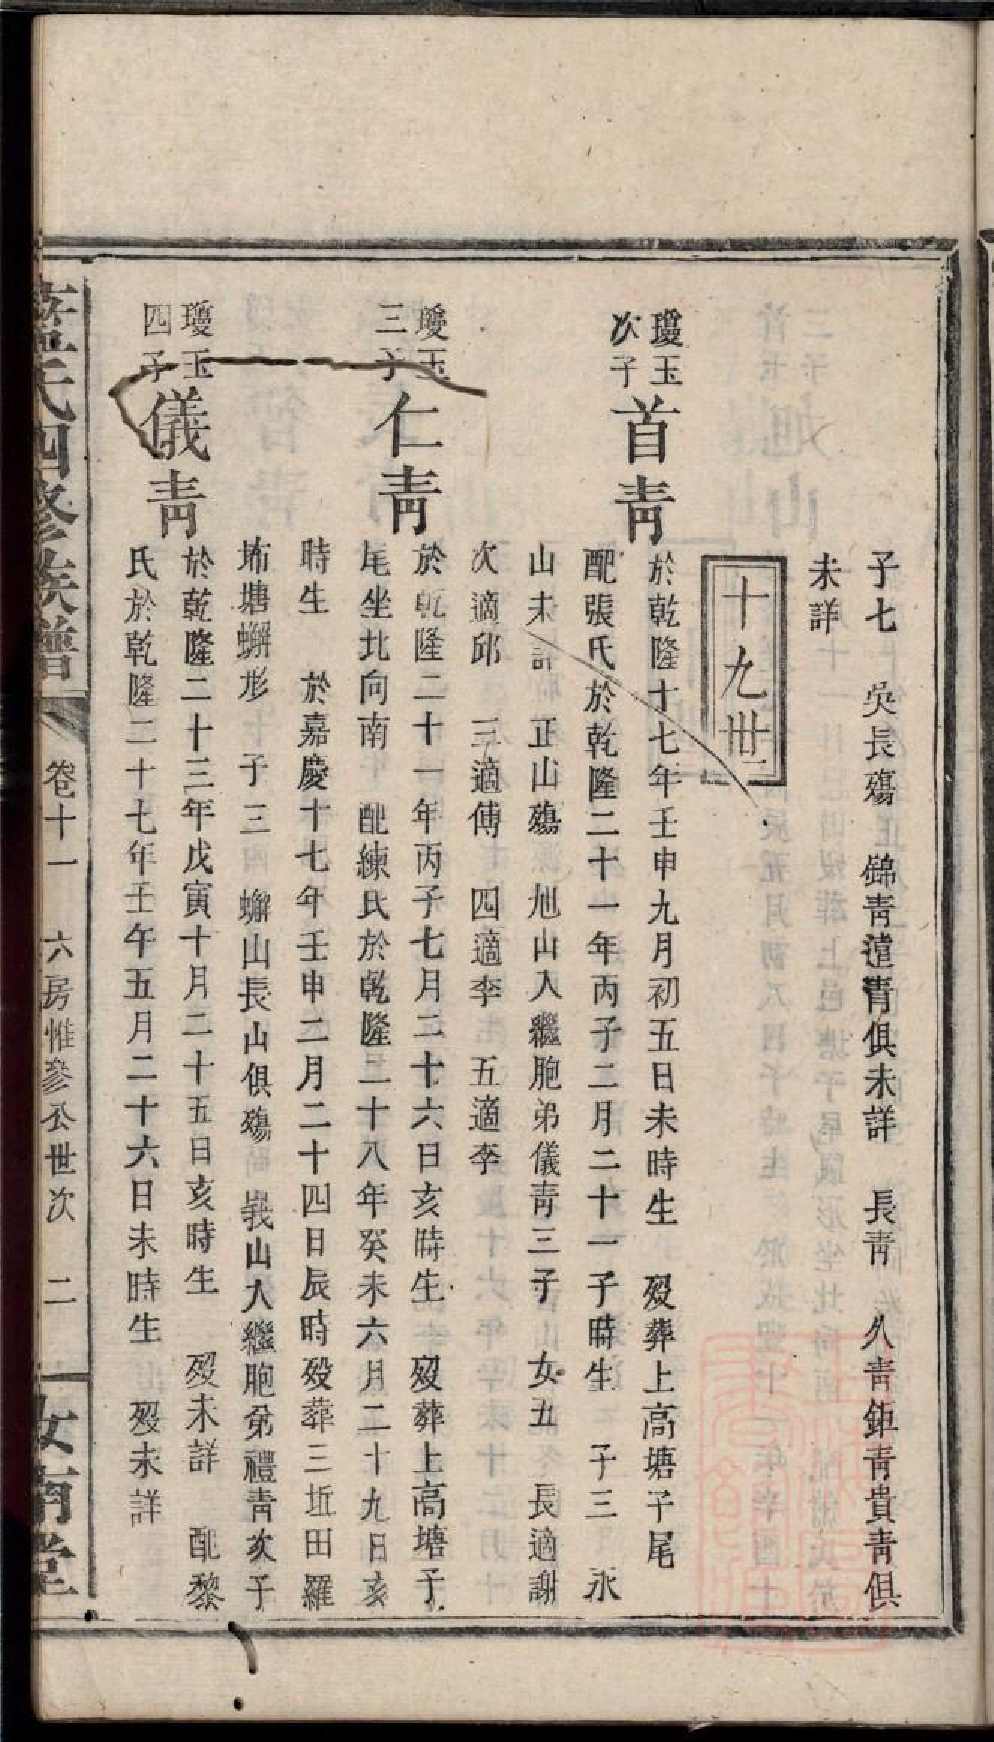 子七 吳長殤 錦青瀗青俱未詳 長青 久青鉅青貴青俱
未詳
十九世
瓊玉
次子
首青
於乾隆十七年壬申九月初五日未時生 歿葬上高塘子尾
配張氏於乾隆二十一年丙子二月二十一子時生 子三 永
山未詳 正山殤 旭山入繼胞弟儀青三子 女五 長適謝
次適邱 三適傅 四適李 五適李
瓊玉
三子
仁青
於乾隆二十一年丙子七月二十六日亥時生 歿葬上高塘子
尾坐北向南 配練氏於乾隆二十八年癸未六月二十九日亥
時生 於嘉慶十七年壬申二月二十四日辰時歿葬三坵田羅
㘵塘蠏形 子三 蠏山長山俱殤 峩山入繼胞弟禮青次子
瓊玉
四子
儀青
於乾隆二十三年戊寅十月二十五日亥時生 歿未詳 配黎
氏於乾隆二十七年壬午五月二十六日未時生 歿未詳
藍氏四修族譜 卷十一 六房惟參公世次 二 汝南堂